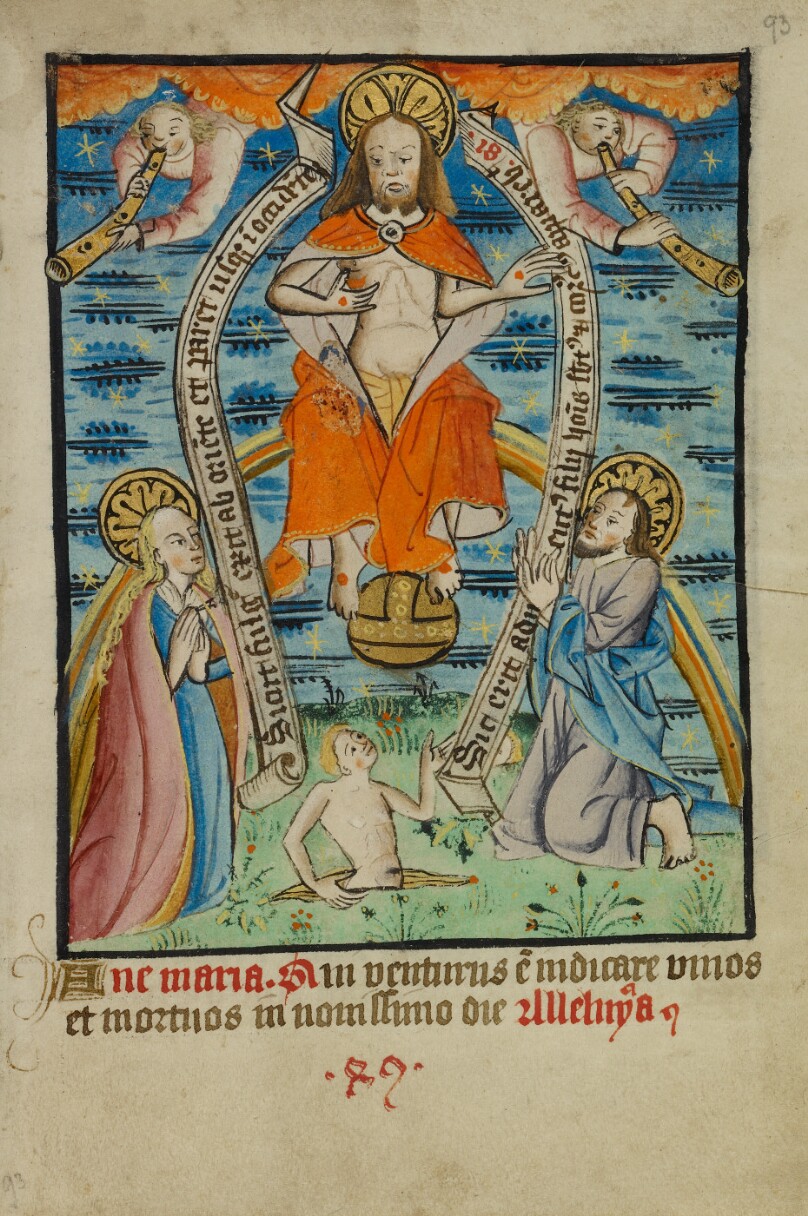 93
Sicut fulg᷒ exit ab oriēte et paret usq̃ ī occidētē
Sic erit adv
ent᷒ filij hoīs
18
Aue maria. Qui venturus ē iudicare viuos
et mortuos in nouissimo die Alleluya
93